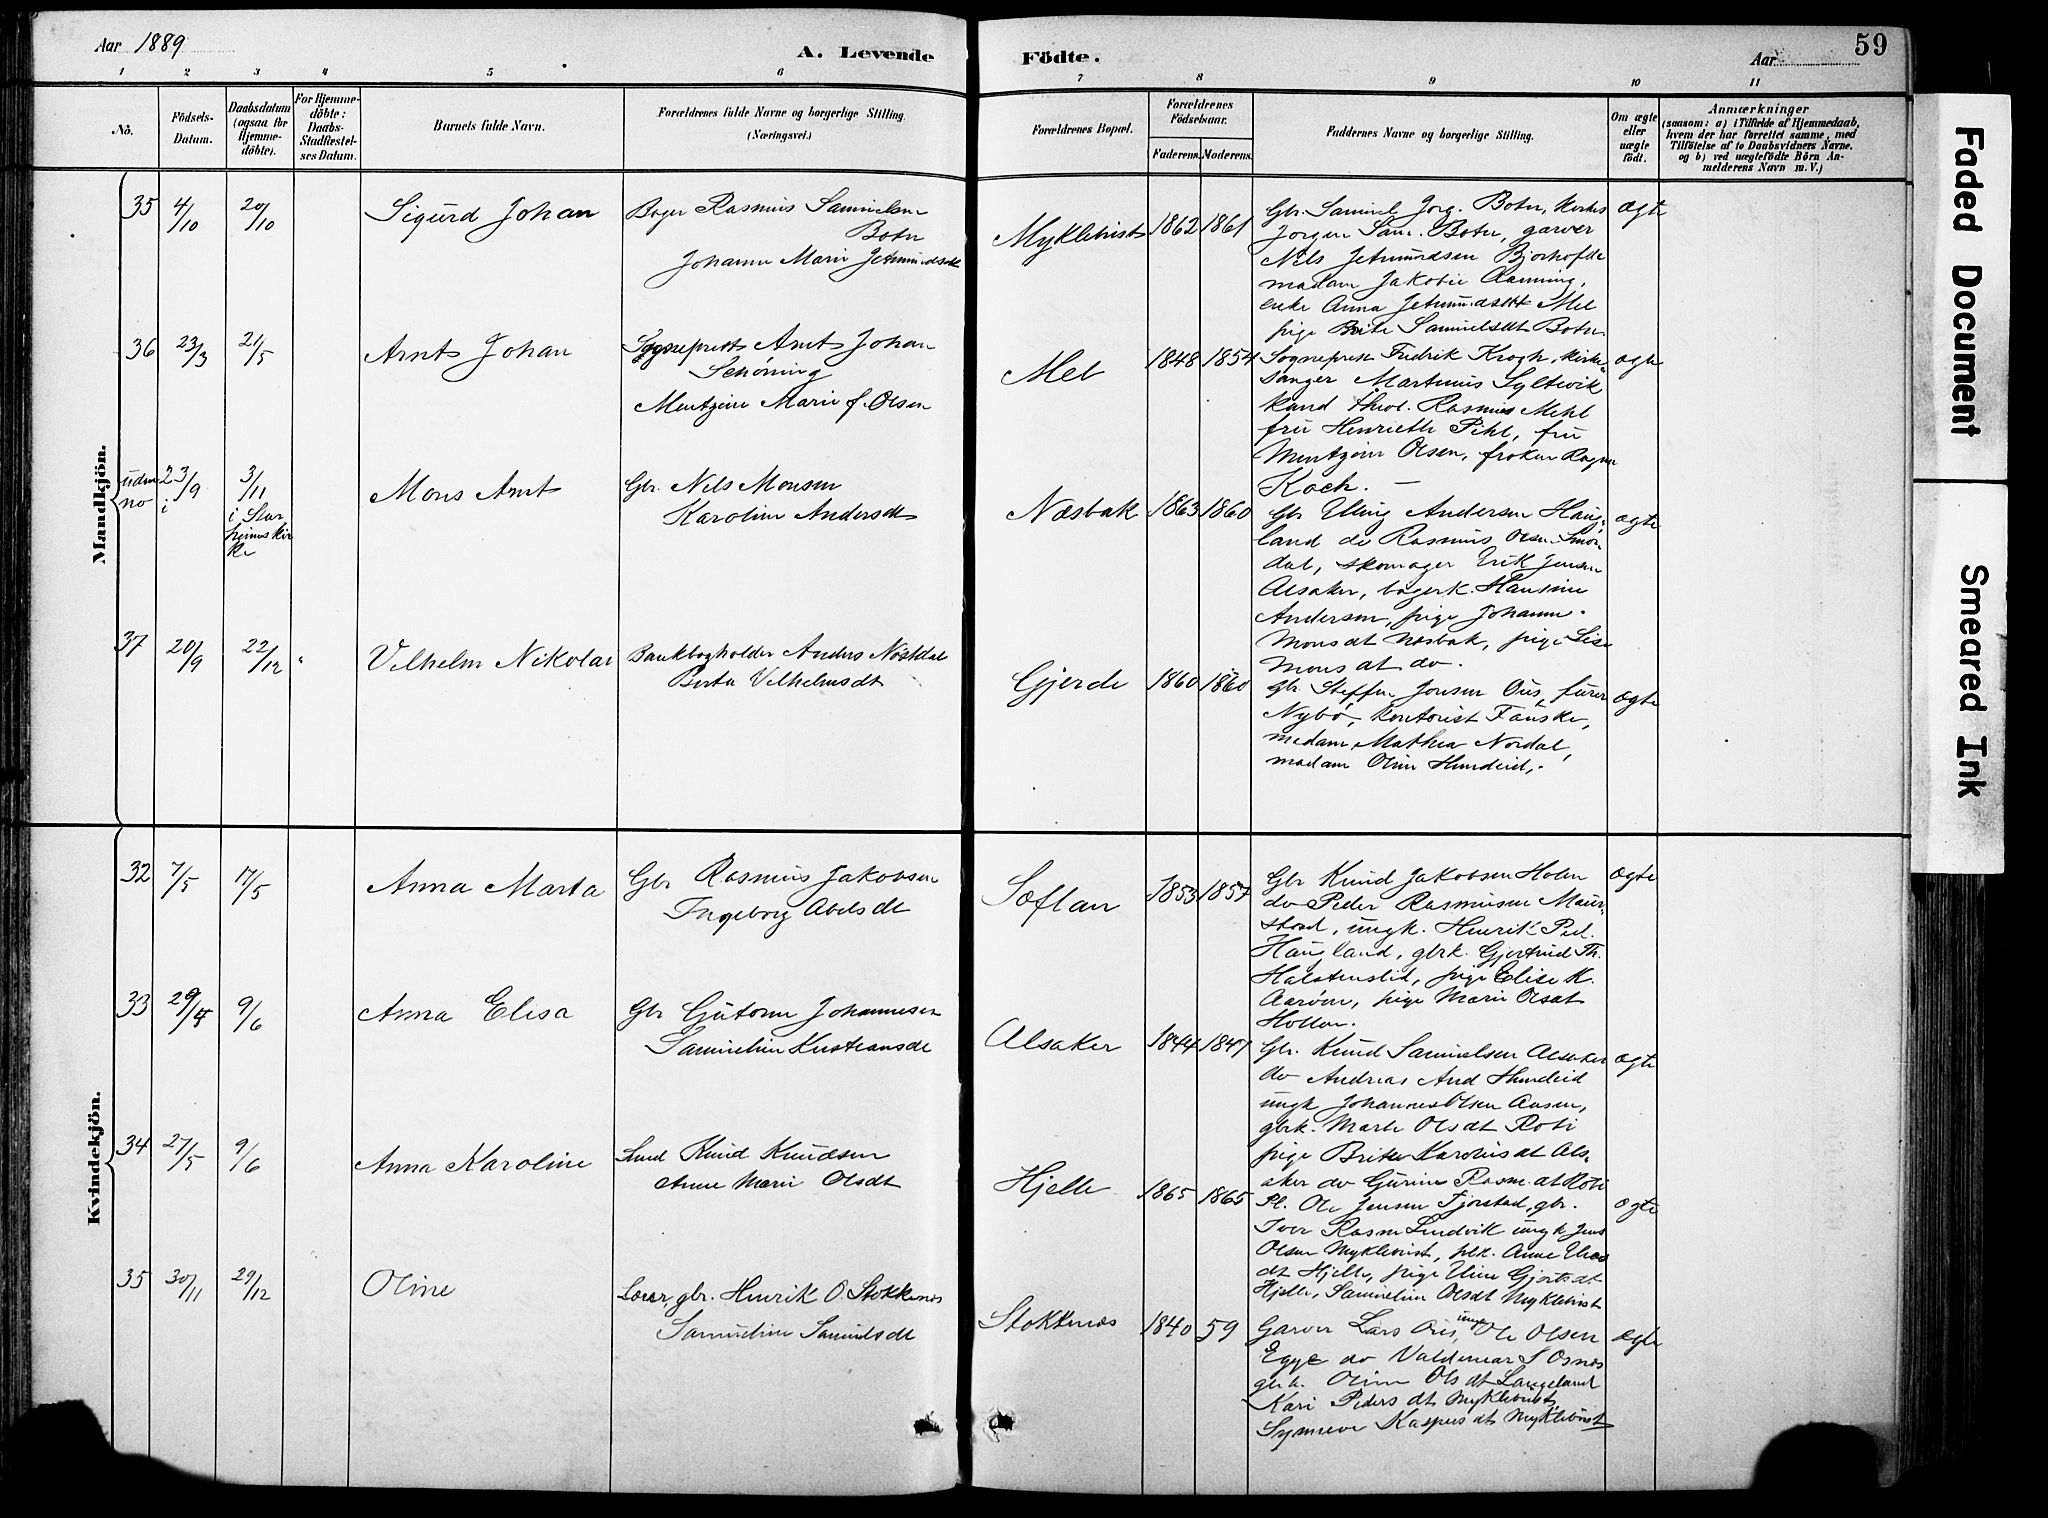 Aar 1889
A. Levende
Födte.
Aar
59
1 2 3 4 5 6 7 8 9 10 11
Nö.
Födsels-
Datum.
Daabsdatum
(ogsaa för
Hjemme-
döbte).
For Hjemme-
döbte:
Daabs-
Stadfæstel-
ses Datum.
Barnets fulde Navn.
Forældrenes fulde Navne og borgerlige Stilling.
(Næringsvei.)
Forældrenes Bopæl.
Forældrenes
Födselsaar.
Faderens. Moderens.
Faddernes Navne og borgerlige Stilling.
Om ægte
eller
uægte
födt.
Anmærkninger
(saasom: a) i Tilfælde af Hjemmedaab,
hvem der har forrettet samme, med
Tilföielse af to Daabsvidners Navne.
og b) ved uægtefödte Börn An-
melderens Navn m. V.)
Mandkjön.
35 4/10 20/10 Sigurd Johan
Rasmus Samuelsen
Botn
Johanne Marie Jetmundsdt
Myklebust 1862 1861
Gbr. Samuel Jørg. Botn,
Jørgen Sam. Botn, garver
Nils Jetmundsen
madam Jakobie Aanning,
enke Anna Jetmundsdt Mel
pige Samuelsdt Botn
ægte
36 23/3 21/5 Arnt Johan
Sogneprest Arnt Johan
Schøning
Mentzine Marie f. Olsen
Mel 1848 1854
Sogneprest Fredrik Krogh, kirke-
sanger Martinus Syltevik
kand. theol. Rasmus Mehl
fru Henriette Pihl, fru
Mentzine Olsen, frøken Ragna
Koch. —
ægte
uden
no 23/9
i
3/11
i Star
heims kir
ke
Mons Arnt
Gbr. Nils Monsen
Karoline Andersdt
Næsbak 1863 1860
Gbr Andersen Haug-
land do Rasmus Olsen Smør-
dal, skomager Erik Jensen
Alsaker, Hansine
Andersen, pige Johanne
Monsdt Næsbak, pige Lise
Monsdt do.
ægte
37 20/9 22/12 " Vilhelm Nikolai
Bankbogholder Anders Nøstdal
Berta Vilhelmsdt
Gjerde 1860 1860
Gbr. Steffen Jonsen Øus,
Nybø, kontorist Fauske,
madam Mathea Nordal,
madam Oline Hundeid,.
ægte
Kvindekjön.
32 7/5 17/5 Anna Marta
Gbr Rasmus Jakobsen
Ingeborg Abelsdt
Sæftan 1853 1857
Gbr Knud Jakobsen Holen
do Peder Rasmusen Maur-
stad, ungk. Henrik Ped.
Haugland, gbrk. Gjertrud Th.
Halstenslid, pige Elise K.
Aarøen, pige Marie Olsdt
ægte
33 29/4 9/6 Anna Elisa
Gbr Gutorm Johannesen
Samueline Kristiansdt
Alsaker 1844 1847
Gbr. Knud Samuelsen Alsaker
do Andreas And Hundeid
ungk Johannes Olsen Aasen,
gbrk. Marte Olsdt Roti
pige Brite Karolusdt Als-
aker do Gurine Rasm.dt Roti
ægte
34 27/5 9/6 Anna Karoline
Knud Knudsen
Anne Marie Olsdt
Hjelle 1865 1865
Pl. Ole Jensen Fjørstad, gbr.
Iver Rasm Lundvik ungk Jens
Olsen Myklebust, plk. Anne
dt Hjelle, pige Gjertsdt
Hjelle, Samueline Olsdt Myklebust
ægte
35 30/11 29/12 Oline
Lærer, gbr. Henrik O. Stokkenæs
Samueline Samuelsdt
Stokkenæs 1840 59
Garver Lars Øus, ungk Ole Olsen
Egge do Valdemar S Osnes
gbrk. Oline Olsdt Langeland
Kari Pedersdt Myklebust,
Synneve Kaspersdt Myklebust
ægte
Faded Document
Smeared Ink